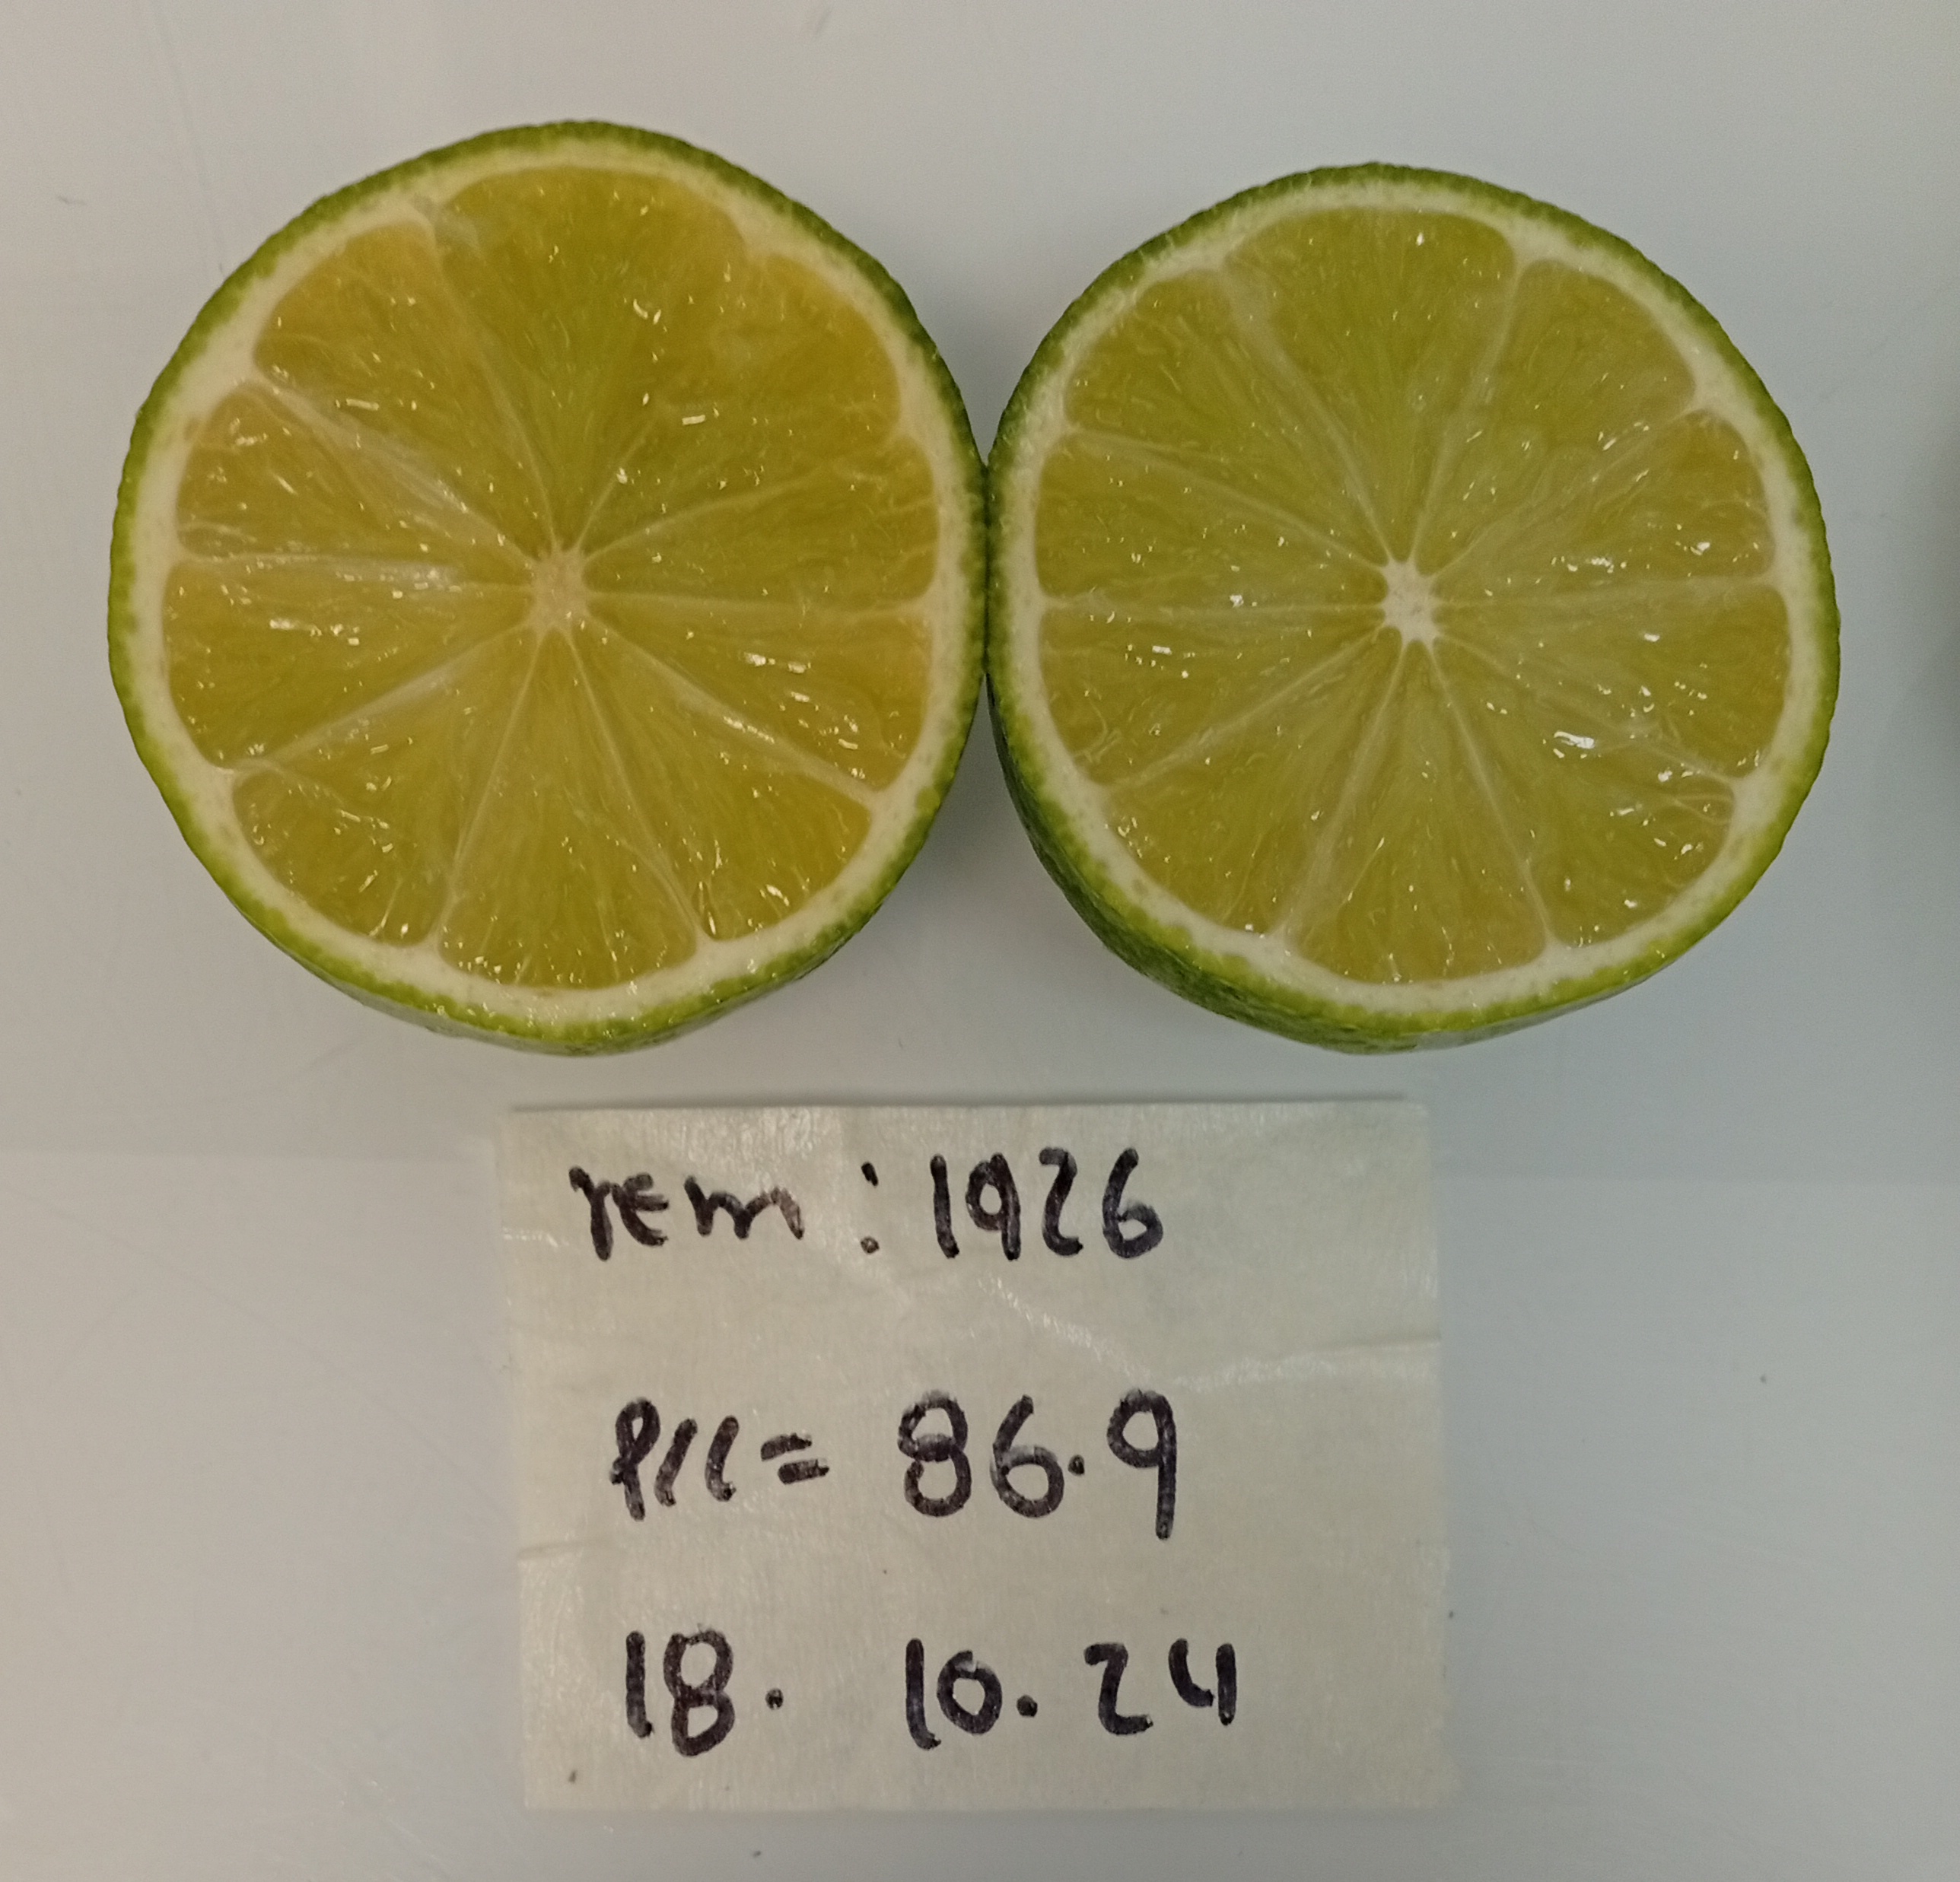 rem: 1926
PCC= 86.9
18. 10.24